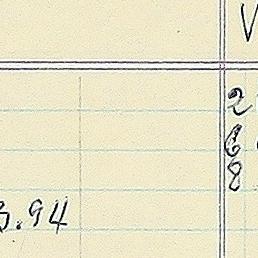 V
2
6
8
3.94